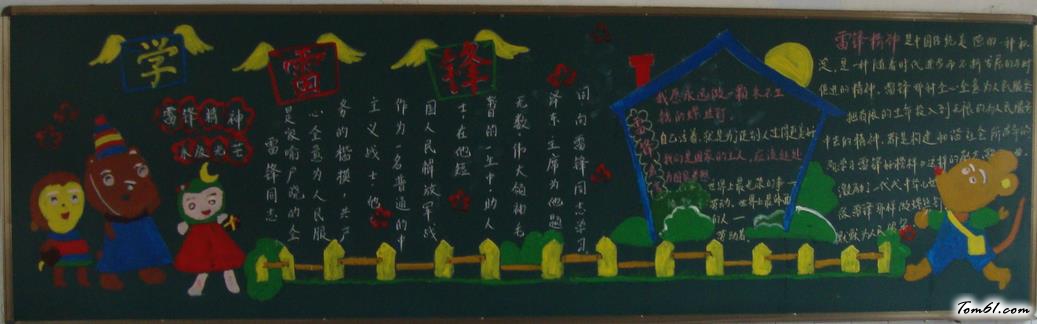 学雷锋
雷锋精神
永放光芒
雷锋同志
是家喻户晓的全
心全意为人民服
务的楷模，共产
主义战士，他
作为一名普通的中
国人民解放军战
士，在他短
暂的一生中，助人
无数，伟大领袖毛
泽东主席为他题
词向雷锋同志学习
我愿永远做一颗永不生
锈的螺丝钉。
自己活着，就是为了使别人生活得更美好
我们是国家的主人，应该处处
为国家着想
世界上最光荣的事—
劳动。世界上最体面
的人—
劳动者。
雷锋精神是中国传统美德的一种积
淀，是一种随着时代进步而不断发展的与时
俱进的精神。雷锋那种全心全意为人民服务
把有限的生命投入到无限的为人民服务
中去的精神，都是构建和谐社会所
雷锋的榜样
激励着一代代中华
像雷锋那样做
默默为人民
Tom61.com